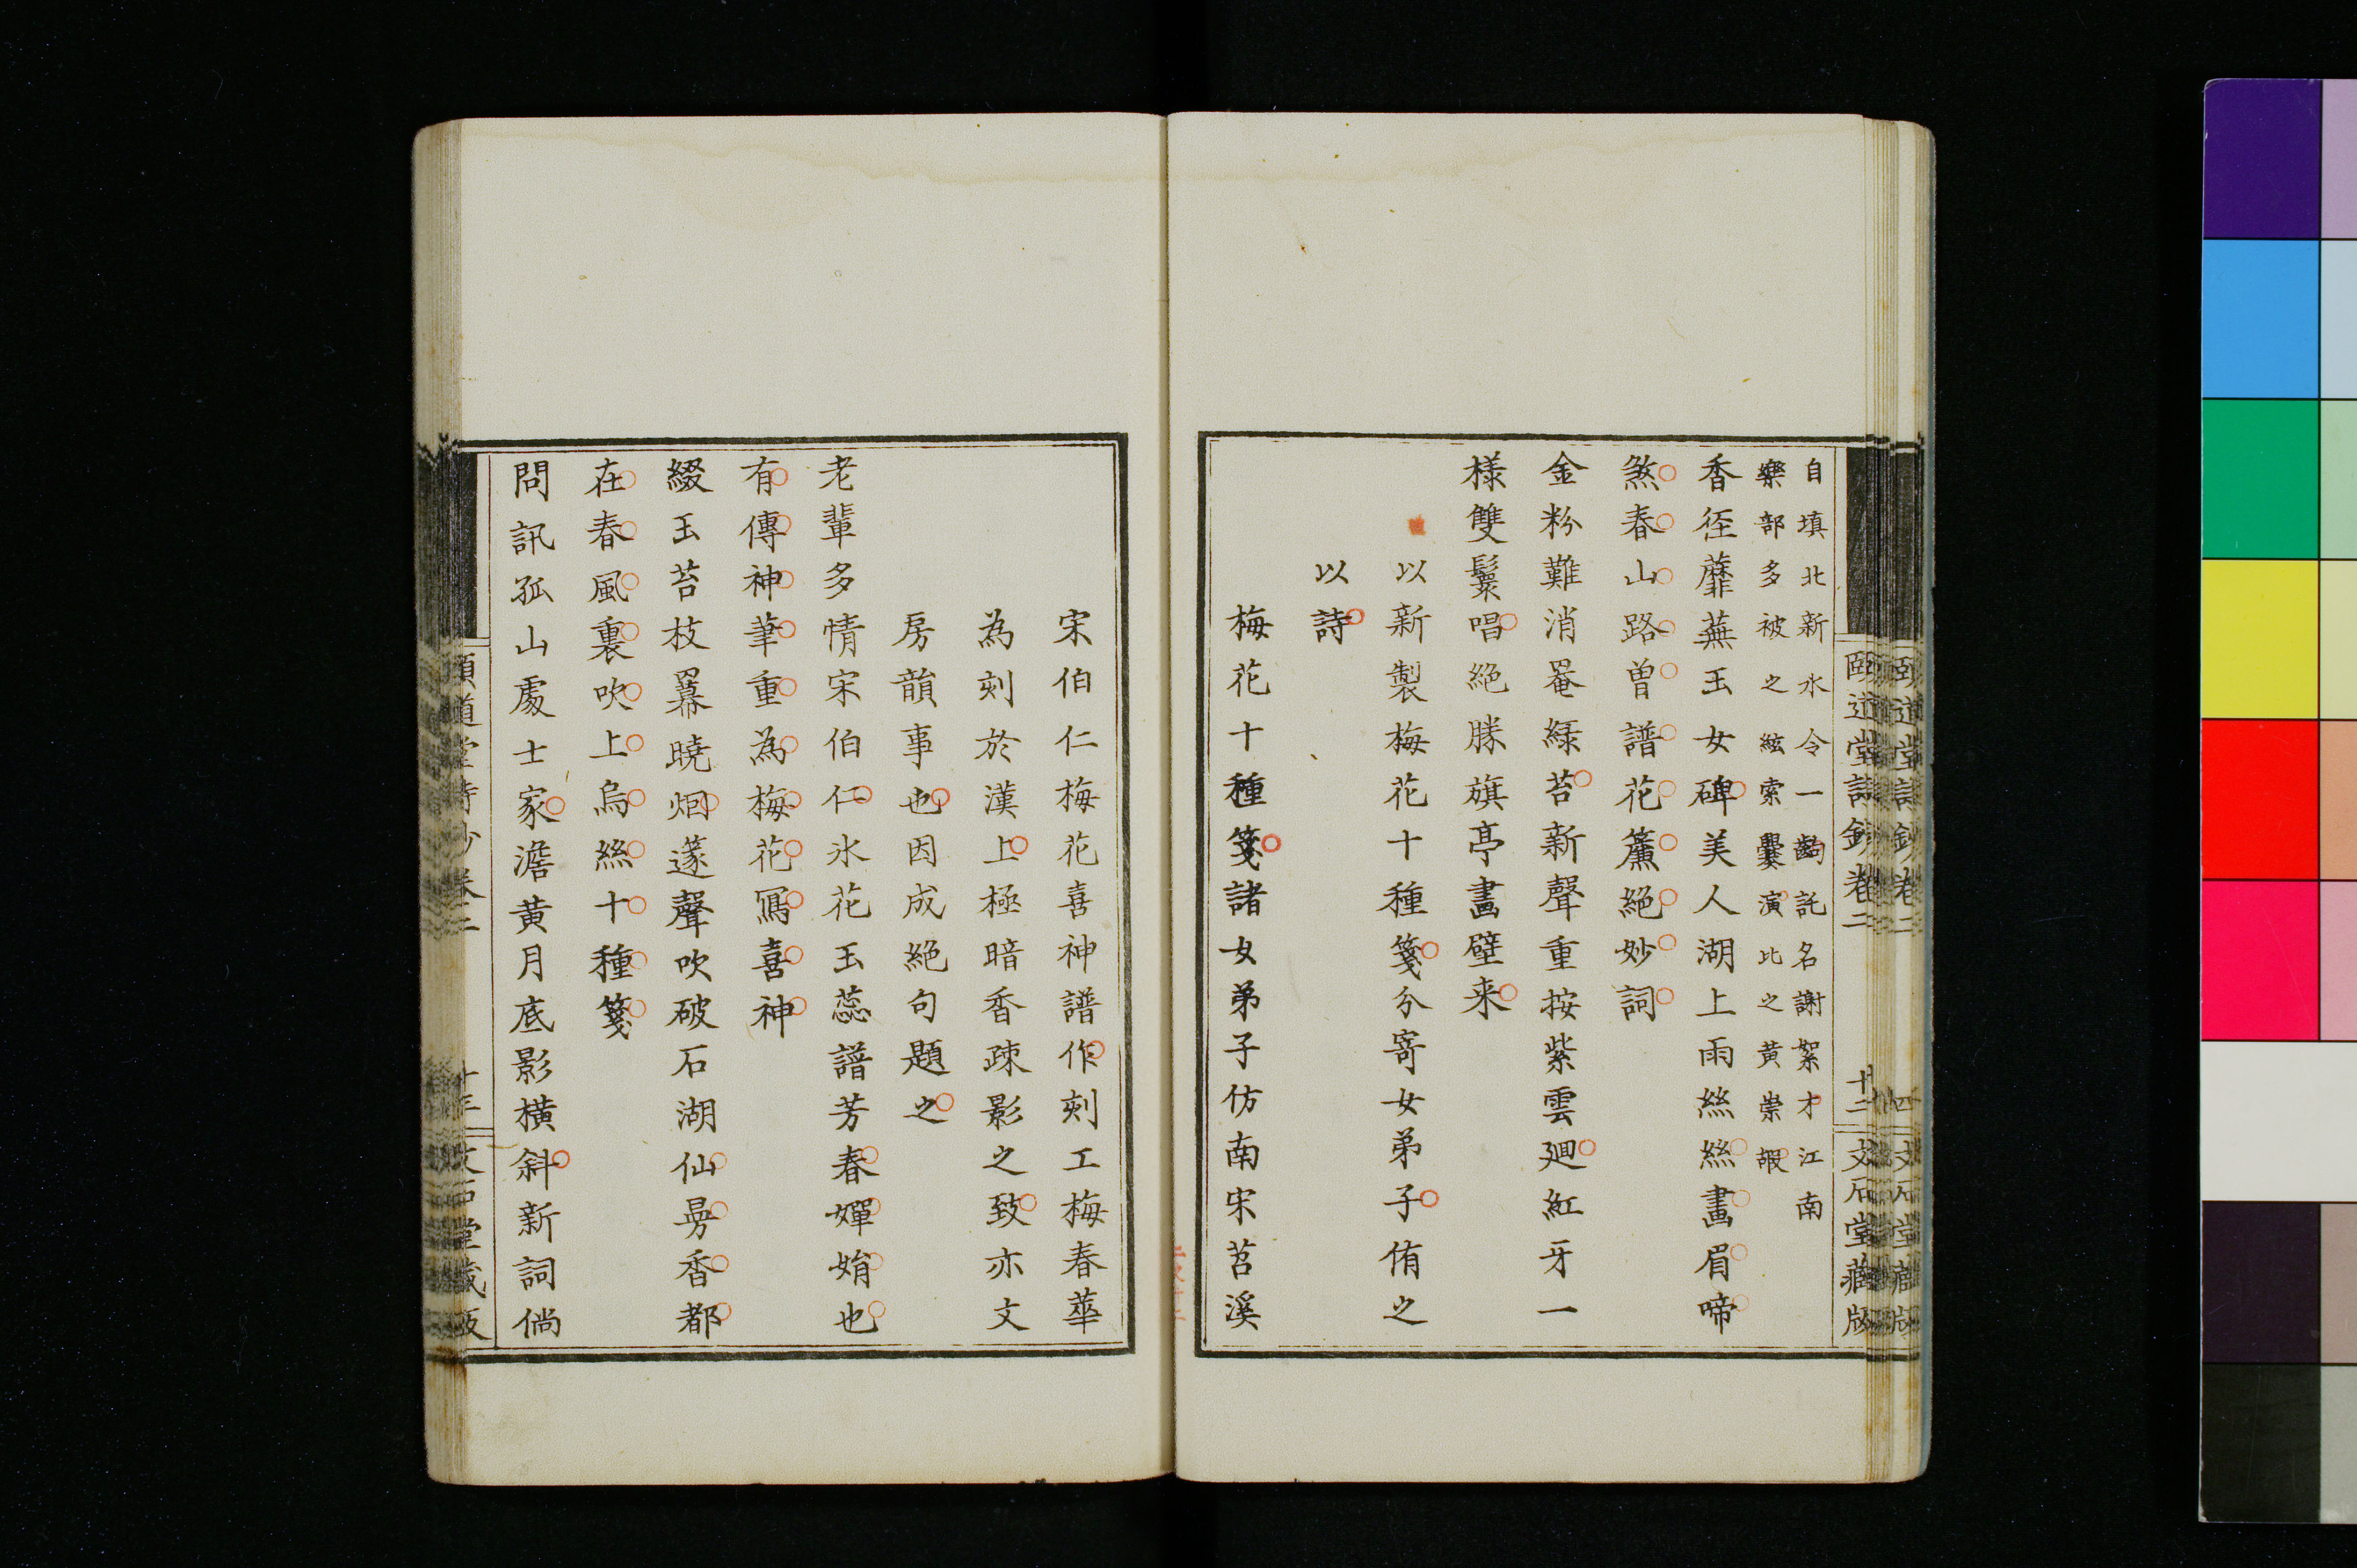 自填北新水令一齣託名謝絮才江南
樂部多被之絃索爨演比之黄崇嘏
香徑蘼蕪玉女碑美人湖上雨絲絲畫眉啼
煞春山路曾譜花簾絕妙詞
金粉難消罨緑苔新聲重按紫雲廻紅牙一
様雙鬟唱絕勝旗亭畫壁来
以新製梅花十種箋分寄女弟子侑之
以詩
梅花十種箋諸女弟子仿南宋苕溪
頤道堂詩鈔卷二
十二
文石堂藏版
宋伯仁梅花喜神譜作刻工梅春華
為刻於漢上極暗香疎影之致亦文
房韻事也因成絕句題之
老輩多情宋伯仁氷花玉蕊譜芳春嬋娟也
有傳神筆重為梅花寫喜神
綴玉苔枝羃曉烟邃聲吹破石湖仙㝵香都
在春風裏吹上烏絲十種箋
問訊孤山處士家澹黄月底影橫斜新詞倘
頤道堂詩鈔卷二
文石堂藏版